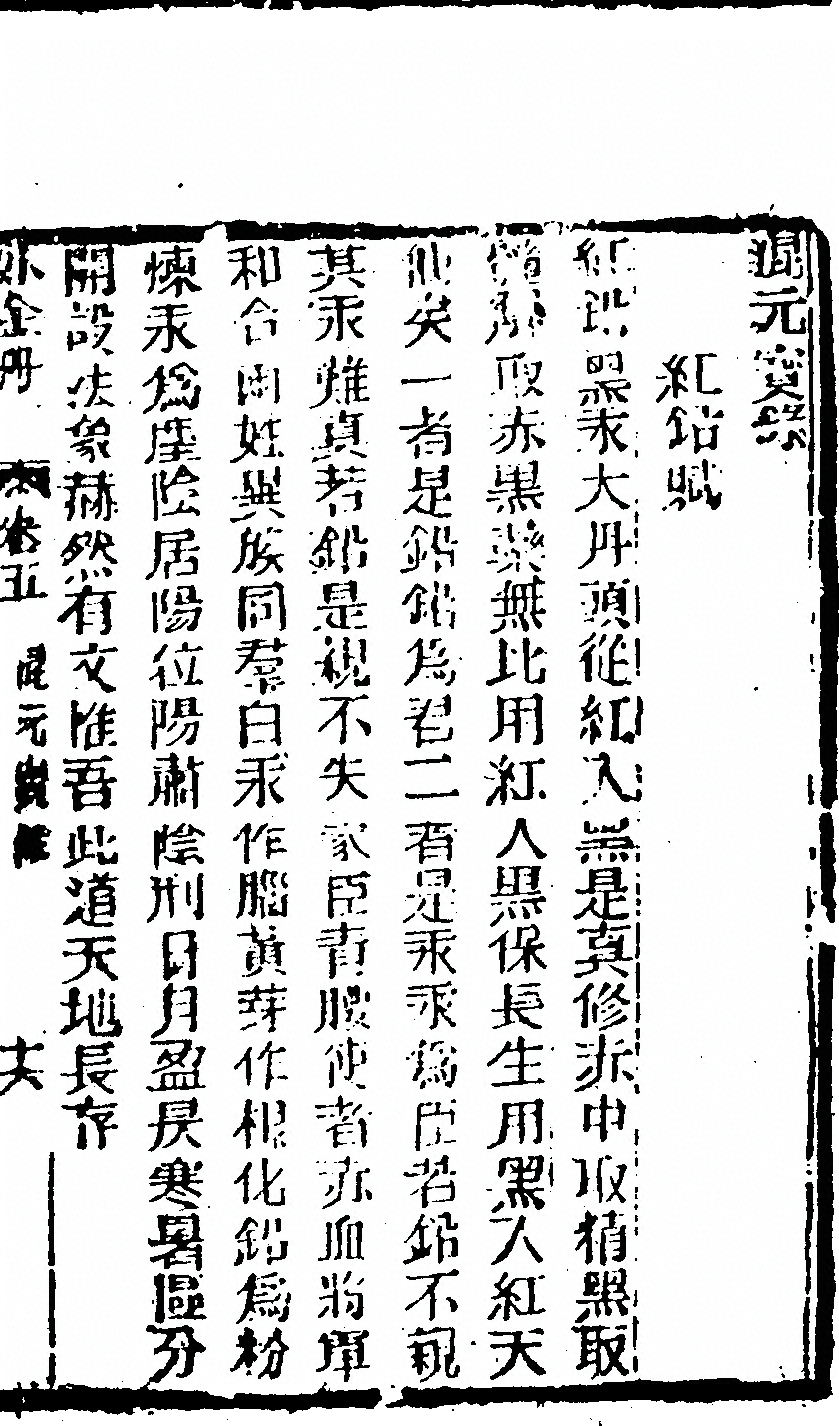 混元寶錄
紅鉛賦
紅鉛黑汞大丹頭從紅入黑是真修赤中取精黑取
髓解取赤黑藥無比用紅入黑保長生用黑入紅天
仙矣一者是鉛鉛為君二者是汞汞為臣若鉛不親
其汞難真若鉛是親不失家臣青腰使者赤血將軍
和合兩姓異族同羣白汞作腦黃芽作根化鉛為粉
煉汞為塵陰居陽位陽肅陰刑日月盈昃寒暑區分
開設法象赫然有文惟吾此道天地長存
外金丹 卷五 混元寶錄 十六